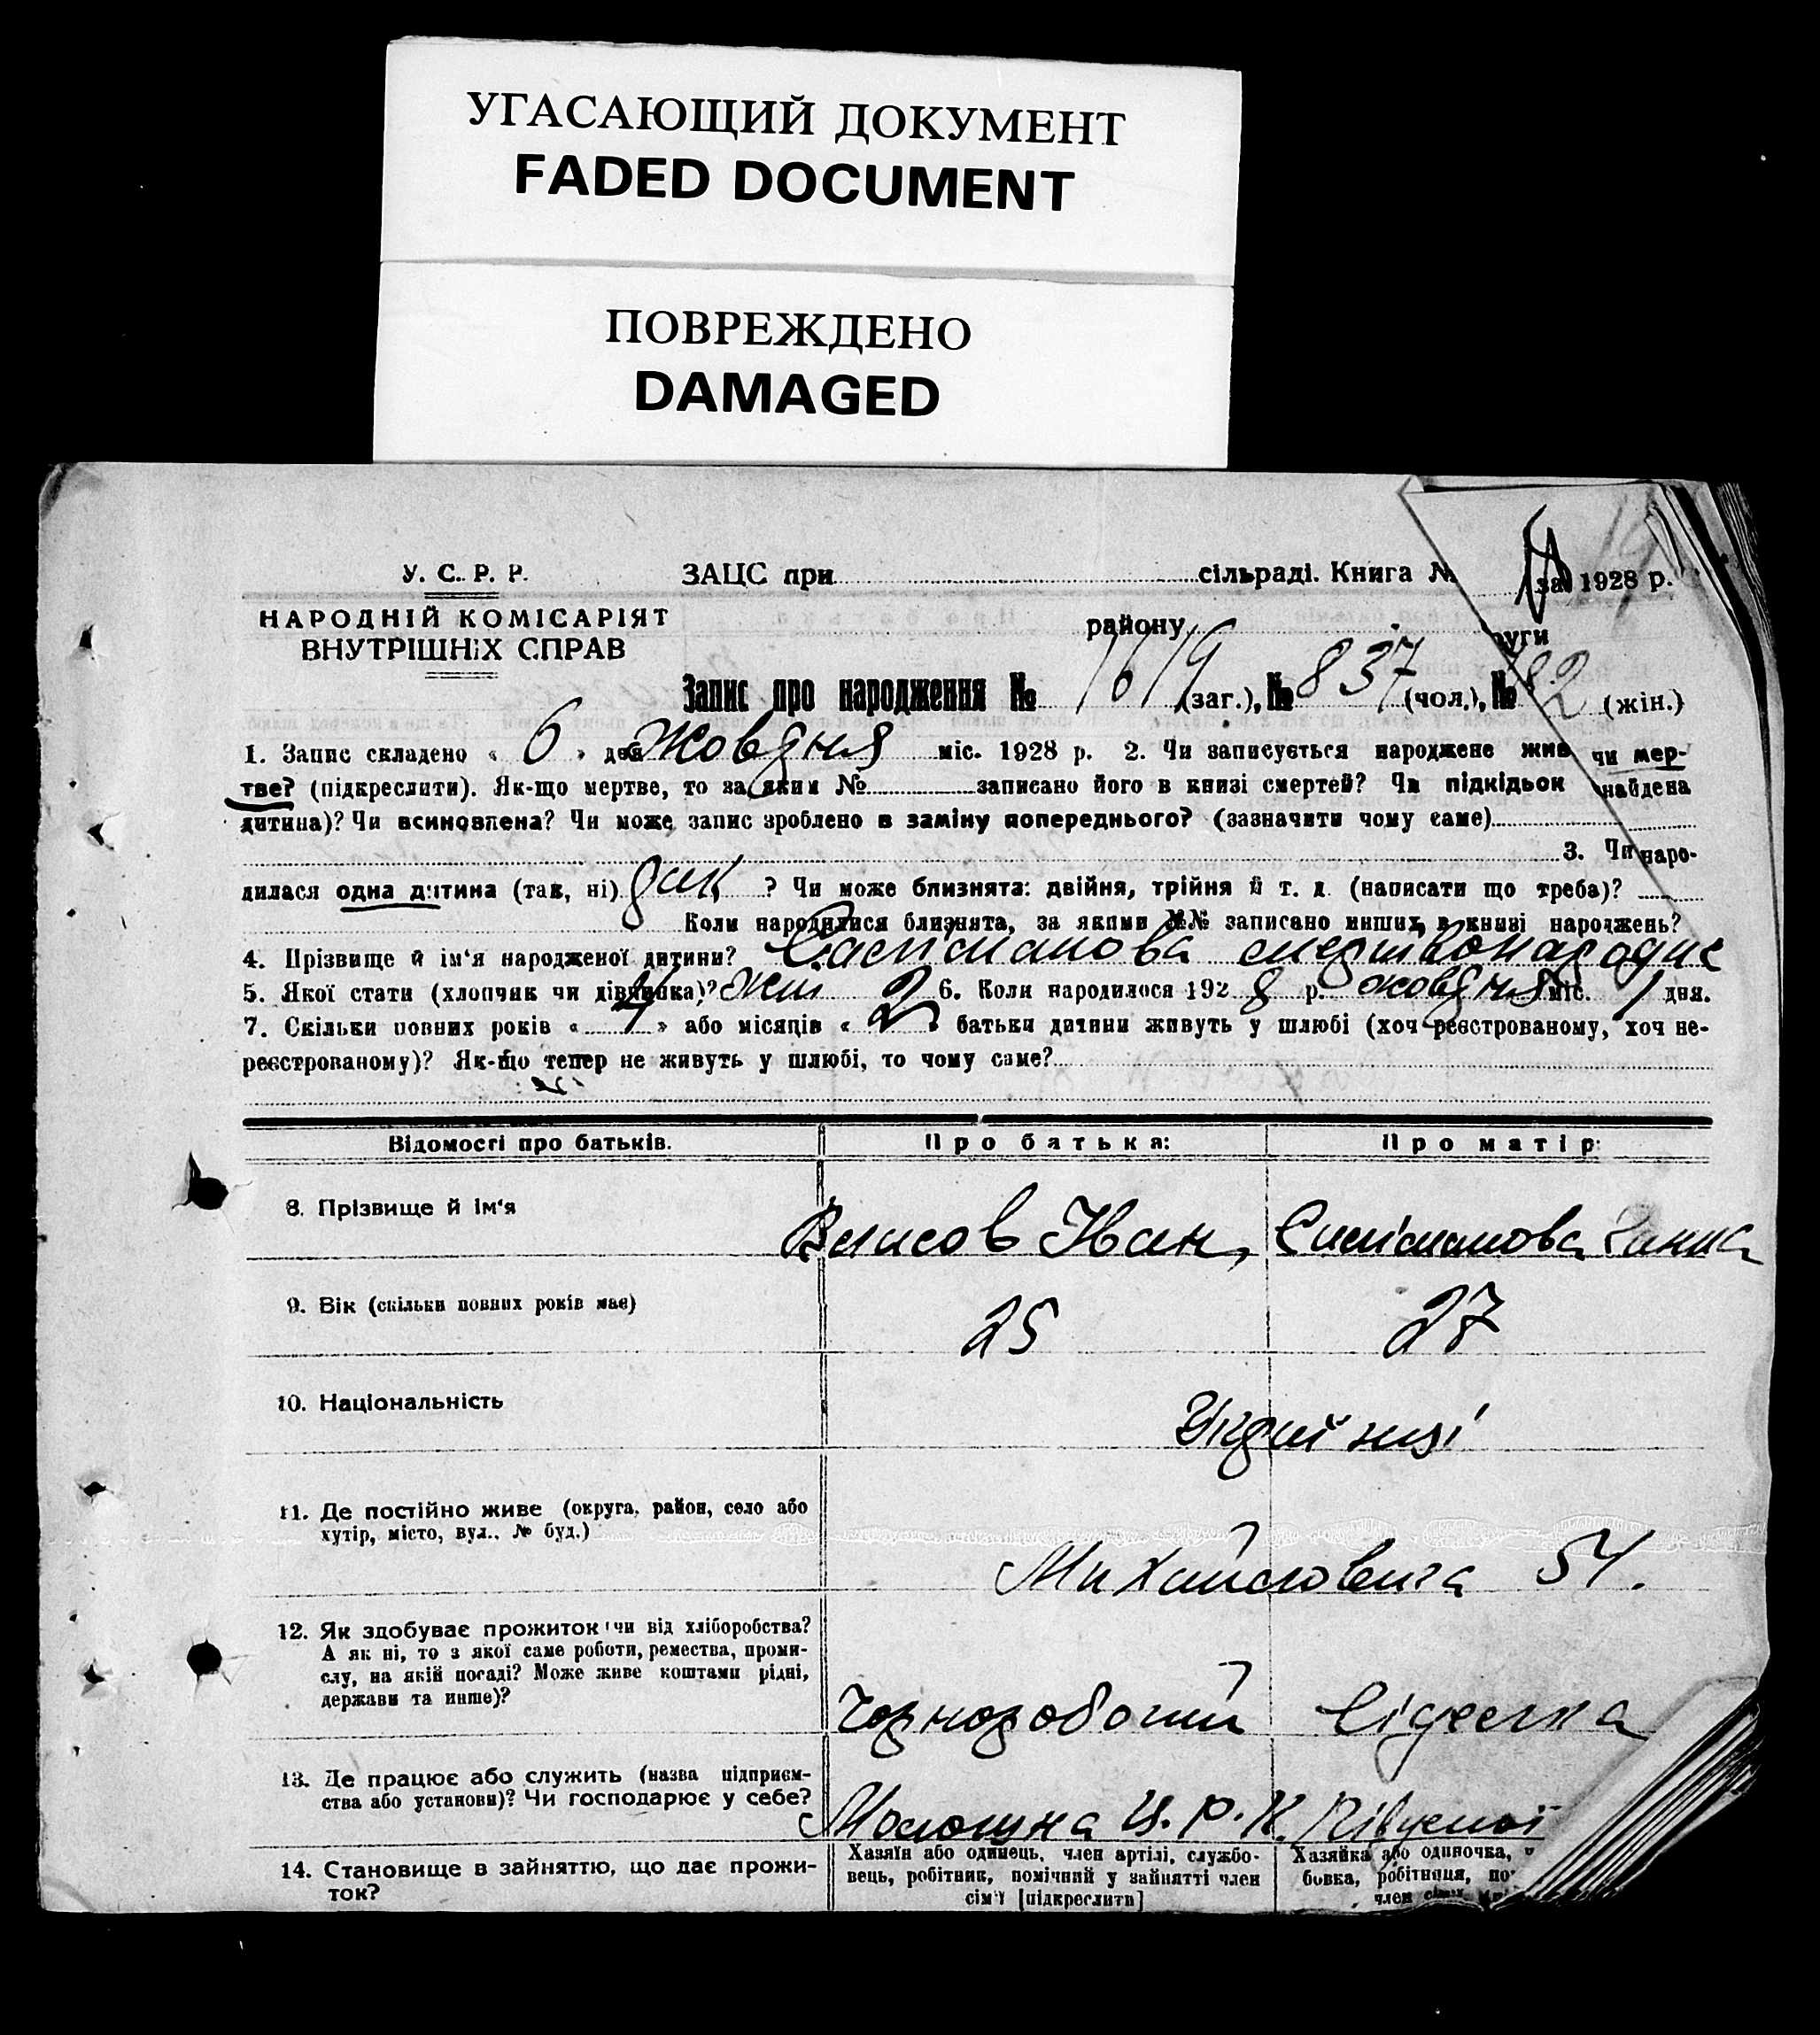 УГАСАЮЩИЙ ДОКУМЕНТ
FADED DOCUMENT
ПОВРЕЖДЕНО
DAMAGED
У. С. Р. Р.
НАРОДНІЙ КОМІСАРІЯТ
ВНУТРІШНІХ СПРАВ
ЗАЦС при сільраді. Книга № за 1928 р.
району руги
Запис про народження № 1619 (заг.), № 837 (чол.), № 782 (жін.)
1. Запис складено « 6 » дня Жовдня міс. 1928 р. 2. Чи записується народжене живе чи мер-
тве? (підкреслити). Як-що мертве, то за яким № записано його в книзі смертей? Чи підкідьок найдена
дитина)? Чи всиновлена? Чи може запис зроблено в заміну попереднього? (зазначити чому саме)
3. Чи наро-
дилася одна дитина (так, ні) ? Чи може близнята: двійня, трійня й т. д. (написати що треба)?
Коли народилися близнята, за якими №№ записано инших в книзі народжень?
4. Прізвище й ім'я народженої дитини? мертвонародне
5. Якої стати (хлопчик чи дівчинка)? жін 6. Коли народилося 1928 р. жовдня міс. 1 дня.
7. Скільки повних років « » або місяців « 2 » батьки дитини живуть у шлюбі (хоч реєстрованому, хоч не-
реєстрованому)? Як-що тепер не живуть у шлюбі, то чому саме?
Відомості про батьків. Про батька: Про матір:
8. Прізвище й ім'я Іван, Ганна
9. Вік (скільки повних років має) 25 27
10. Національність Українці
11. Де постійно живе (округа, район, село або
хутір, місто, вул., № буд.)
Михайловича 54.
12. Як здобуває прожиток чи від хліборобства?
А як ні, то з якої саме роботи, ремества, проми-
слу, на якій посаді? Може живе коштами рідні,
держави та инше)?
Чорноробочий
13. Де працює або служить (назва підприєм-
ства або установи)? Чи господарює у себе?
Молошна Ц. Р. К.
14. Становище в зайняттю, що дає прожи-
ток?
Хазяїн або одинець, член артілі, службо-
вець, робітник, помічний у зайнятті член
сім'ї [підкреслити]
Хазяйка або одиночка,
бовка, робітниця,
член